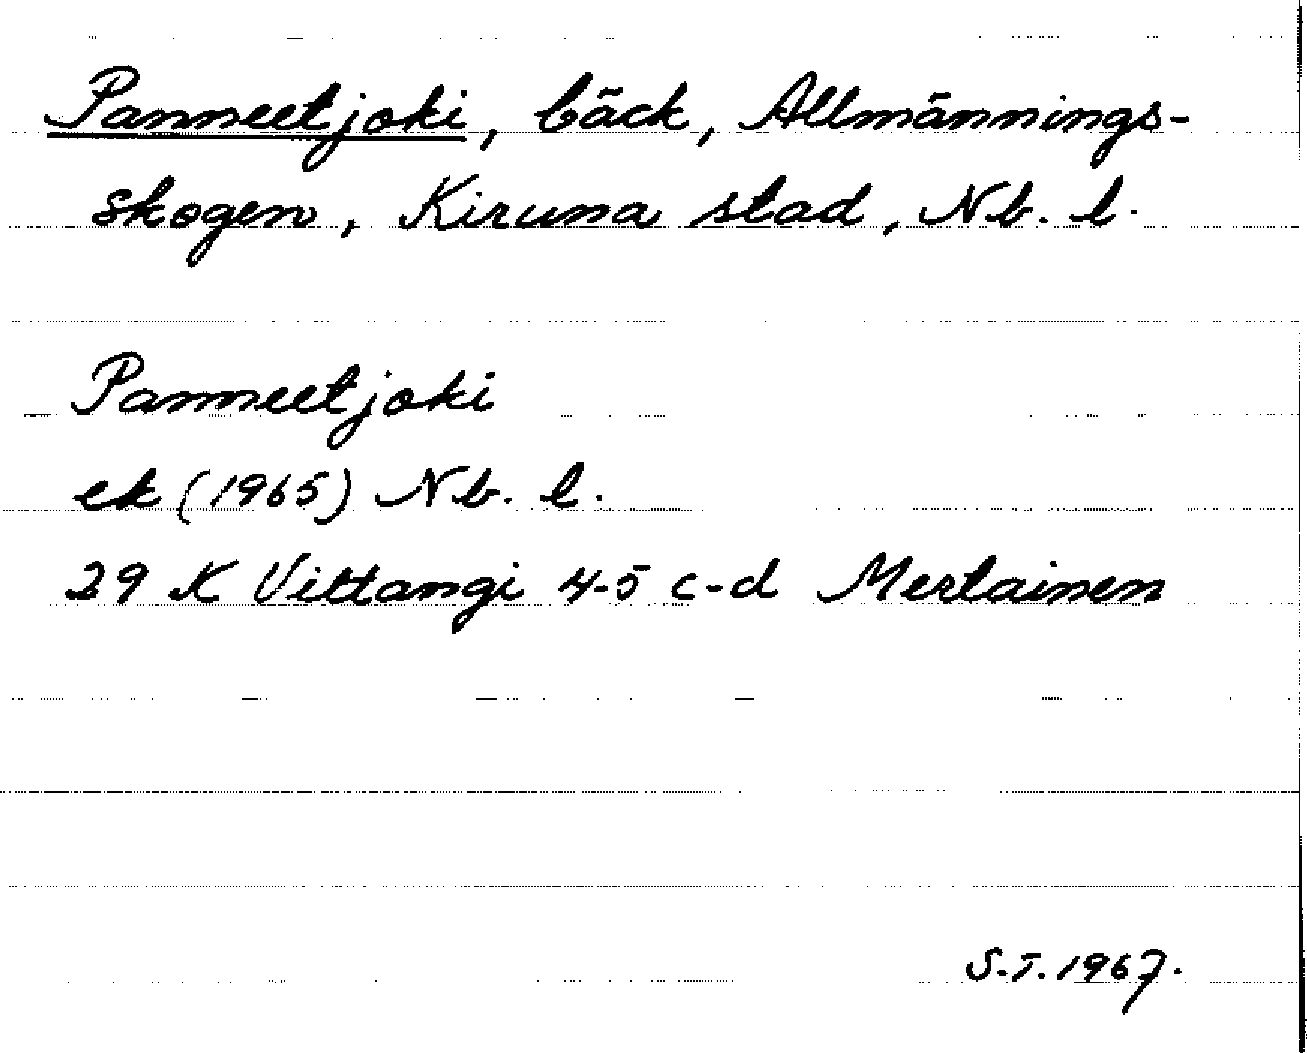 Panneetjoki, bäck, Allmännings-
skogen, Kiruna stad, Nb. l.
Panneetjoki
ek (1965) Nb. l.
29 K Vittangi 4-5 c-d Mertainen
S.T. 1967.